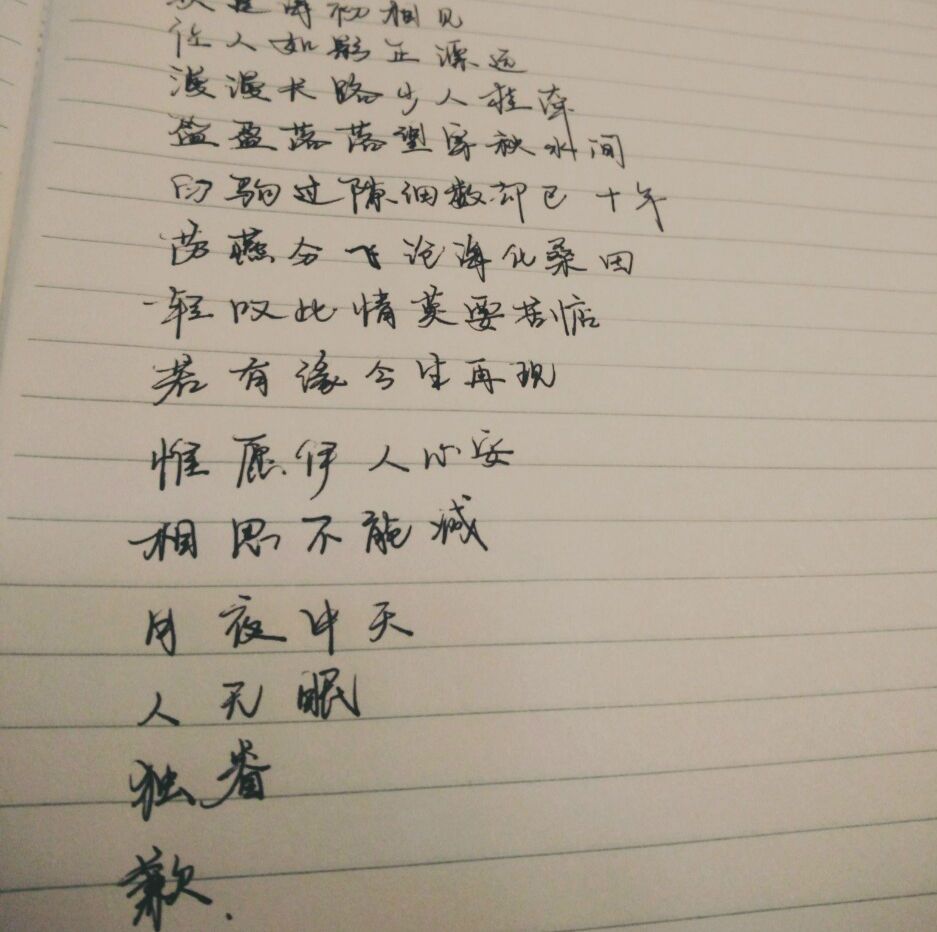 是时初相见
往人如影正漂远
漫漫长路少人牵
盈盈落落望穿秋水间
白驹过隙细数却已十年
劳燕分飞沧海化桑田
轻叹此情莫要割惦
若有缘今生再现
惟愿伊人心安
相思不能减
月夜冲天
人无眠
独眷
歉.